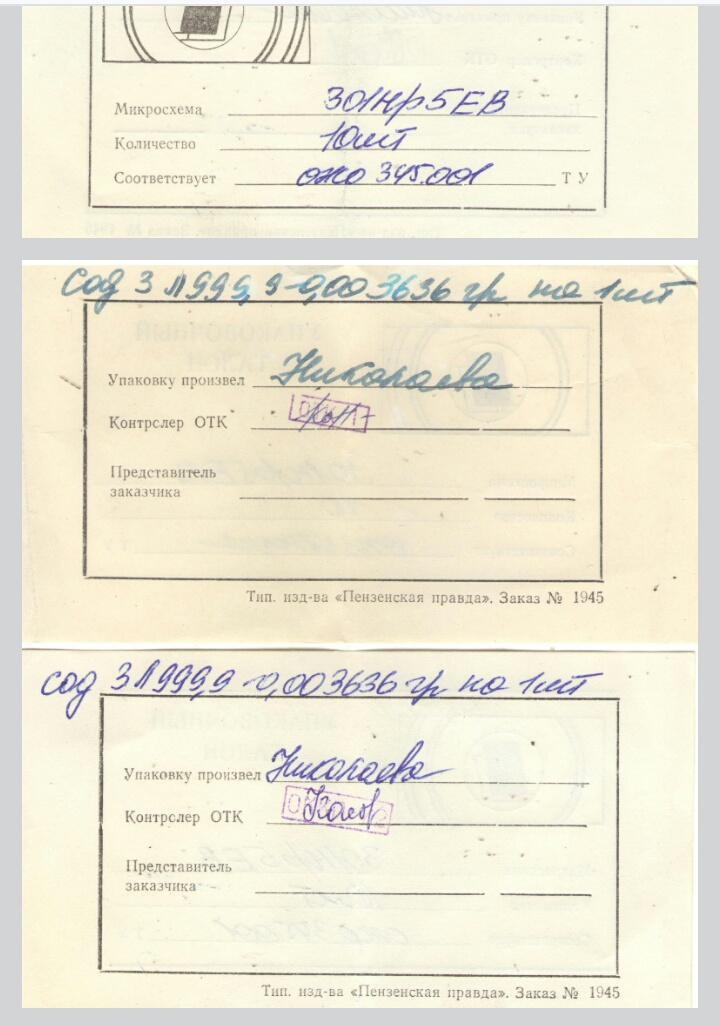 Микросхема 301НР5ЕВ
Количество 10шт
Соответствует ожо 345.001 ТУ
Сод Зл999,9-0,003636 гр на 1шт
Упаковку произвел Николаева
Контролер ОТК
Представитель
заказчика
Тип. изд-ва «Пензенская правда». Заказ № 1945
сод Зл999,9-0,003636 гр на 1шт
Упаковку произвел Николаева
Контролер ОТК
Представитель
заказчика
Тип. изд-ва «Пензенская правда». Заказ № 1945